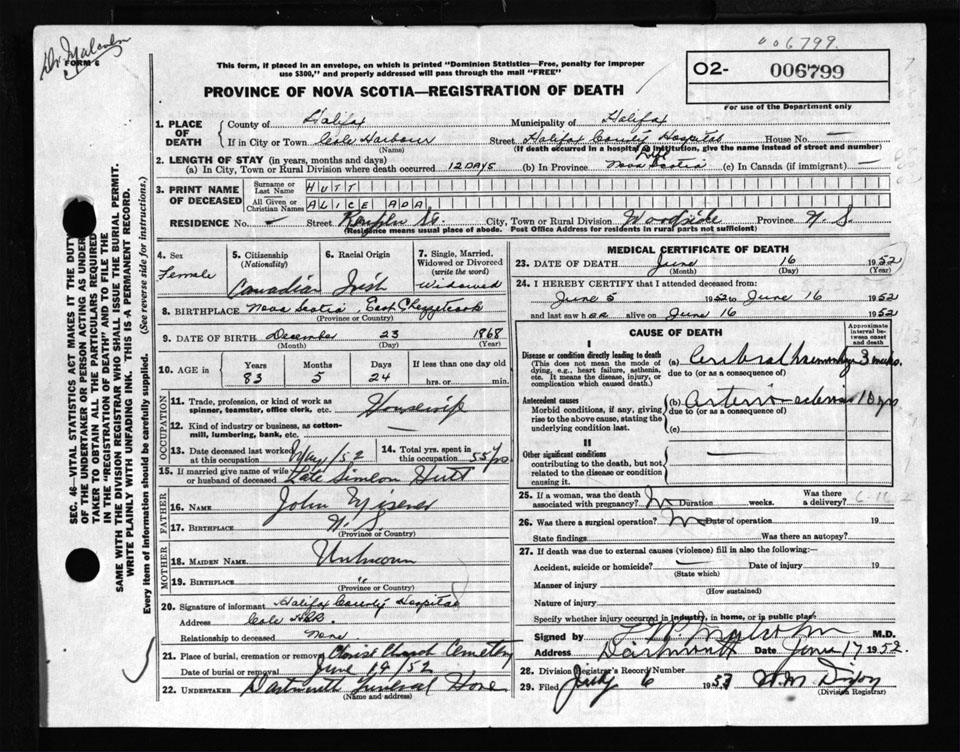 Dr. Malcolm
FORM 6
006799
This form, if placed in an envelope, on which is printed "Dominion Statistics—Free, penalty for improper
use $300," and properly addressed will pass through the mail "FREE"
O2- 006799
For use of the Department only
PROVINCE OF NOVA SCOTIA—REGISTRATION OF DEATH
SEC. 46—VITAL STATISTICS ACT MAKES IT THE DUTY
OF THE UNDERTAKER OR PERSON ACTING AS UNDER
TAKER TO OBTAIN ALL THE PARTICULARS REQUIRED
IN THE "REGISTRATION OF DEATH" AND TO FILE THE
SAME WITH THE DIVISION REGISTRAR WHO SHALL ISSUE THE BURIAL PERMIT.
WRITE PLAINLY WITH UNFADING INK. THIS IS A PERMANENT RECORD.
Every item of information should be carefully supplied. (See reverse side for instructions.)
1. PLACE OF DEATH
County of Halifax Municipality of Halifax
If in City or Town Cole Harbour Street Halifax County Hospital House No. —
(Name) (If death occurred in a hospital or institution, give the name instead of street and number)
2. LENGTH OF STAY (in years, months and days)
(a) In City, Town or Rural Division where death occurred 12 DAYS (b) In Province Life Nova Scotia (c) In Canada (if immigrant) —
3. PRINT NAME OF DECEASED
Surname or Last Name HUTT
All Given or Christian Names ALICE ADA
RESIDENCE No. — Street St. City, Town or Rural Division Woodside Province N.S.
(Residence means usual place of abode. Post Office Address for residents in rural parts not sufficient)
4. Sex Female
5. Citizenship (Nationality) Canadian
6. Racial Origin Irish
7. Single, Married, Widowed or Divorced (write the word) Widowed
8. BIRTHPLACE Nova Scotia, East Chezzetcook
(Province or Country)
9. DATE OF BIRTH December 23 1868
(Month) (Day) (Year)
10. AGE in Years Months Days If less than one day
83 5 24 hrs. or min.
OCCUPATION
11. Trade, profession, or kind of work as
spinner, teamster, office clerk, etc. Housewife
12. Kind of industry or business, as cotton-
mill, lumbering, bank, etc. —
13. Date deceased last worked at this occupation May/52
14. Total yrs. spent in this occupation 55 yrs
15. If married give name of wife
or husband of deceased Late Simeon Hutt
FATHER
16. Name John
17. Birthplace N.
(Province or Country)
MOTHER
18. MAIDEN NAME Unknown
19. BIRTHPLACE "
(Province or Country)
20. Signature of informant Halifax County Hospital
Address Cole Hbr.
Relationship to deceased None
21. Place of burial, cremation or removal Christ Church Cemetery
Date of burial or removal June 19/52
22. UNDERTAKER Dartmouth Funeral Home
(Name and address)
MEDICAL CERTIFICATE OF DEATH
23. DATE OF DEATH June 16 1952
(Month) (Day) (Year)
24. I HEREBY CERTIFY that I attended deceased from:
June 5 1952 to June 16 1952
and last saw her alive on June 16 1952
CAUSE OF DEATH
Approximate interval between onset and death
I
Disease or condition directly leading to death
(This does not mean the mode of
dying, e.g., heart failure, asthenia,
etc. It means the disease, injury, or
complication which caused death.)
(a) Cerebral haemorrhage 3 mos.
due to (or as a consequence of)
Antecedent causes
Morbid conditions, if any, giving
rise to the above cause, stating the
underlying condition last.
(b) Arterio sclerosis 10 yrs
due to (or as a consequence of)
(c)
II
Other significant conditions
contributing to the death, but not
related to the disease or condition
causing it. —
25. If a woman, was the death
associated with pregnancy? No Duration weeks. Was there a delivery?
26. Was there a surgical operation? No Date of operation 19
State findings Was there an autopsy?
27. If death was due to external causes (violence) fill in also the following:—
Accident, suicide or homicide? — Date of injury 19
(State which)
Manner of injury
(How sustained)
Nature of injury
Specify whether injury occurred in industry, in home, or in public place
Signed by Malcolm M.D.
Address Dartmouth Date June 17 1952
28. Division Registrar's Record Number
29. Filed July 6 1953
(Division Registrar)